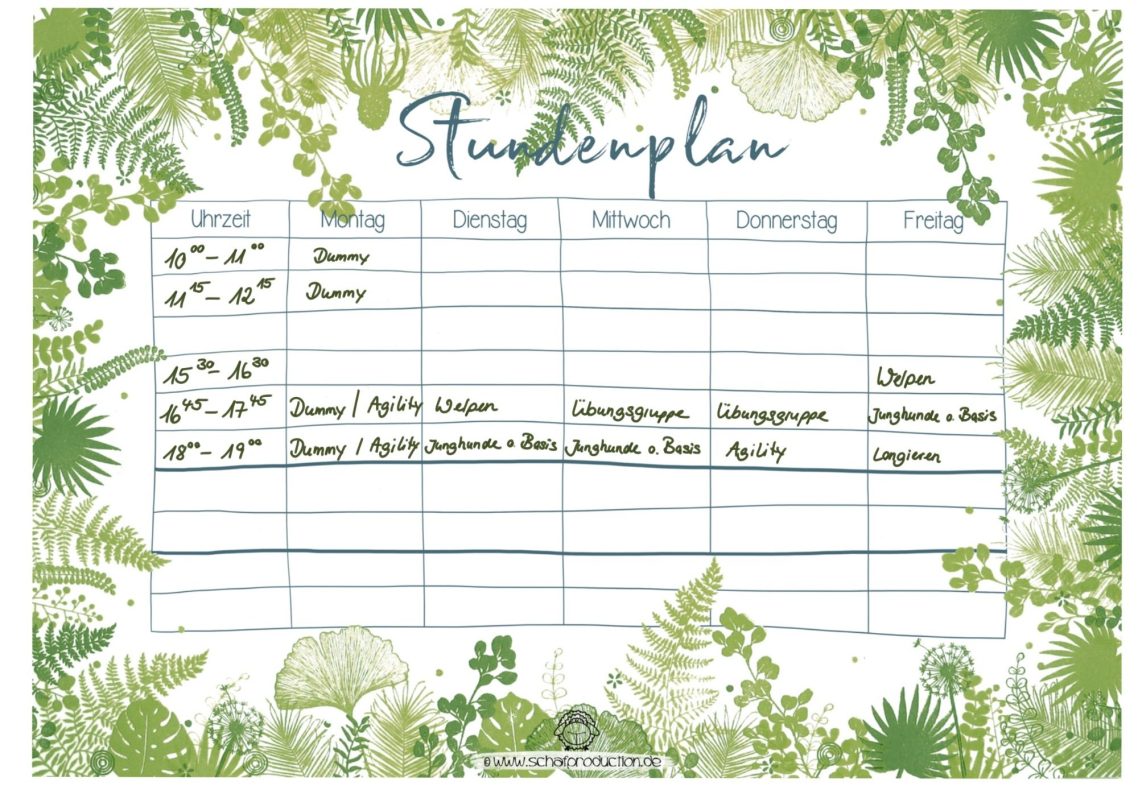 Stundenplan
Uhrzeit Montag Dienstag Mittwoch Donnerstag Freitag
10⁰⁰ – 11⁰⁰ Dummy
11¹⁵ – 12¹⁵ Dummy
15³⁰ – 16³⁰ Welpen
16⁴⁵ – 17⁴⁵ Dummy / Agility Welpen Übungsgruppe Übungsgruppe Junghunde o. Basis
18⁰⁰ – 19⁰⁰ Dummy / Agility Junghunde o. Basis Junghunde o. Basis Agility Longieren
©www.schafproduction.de